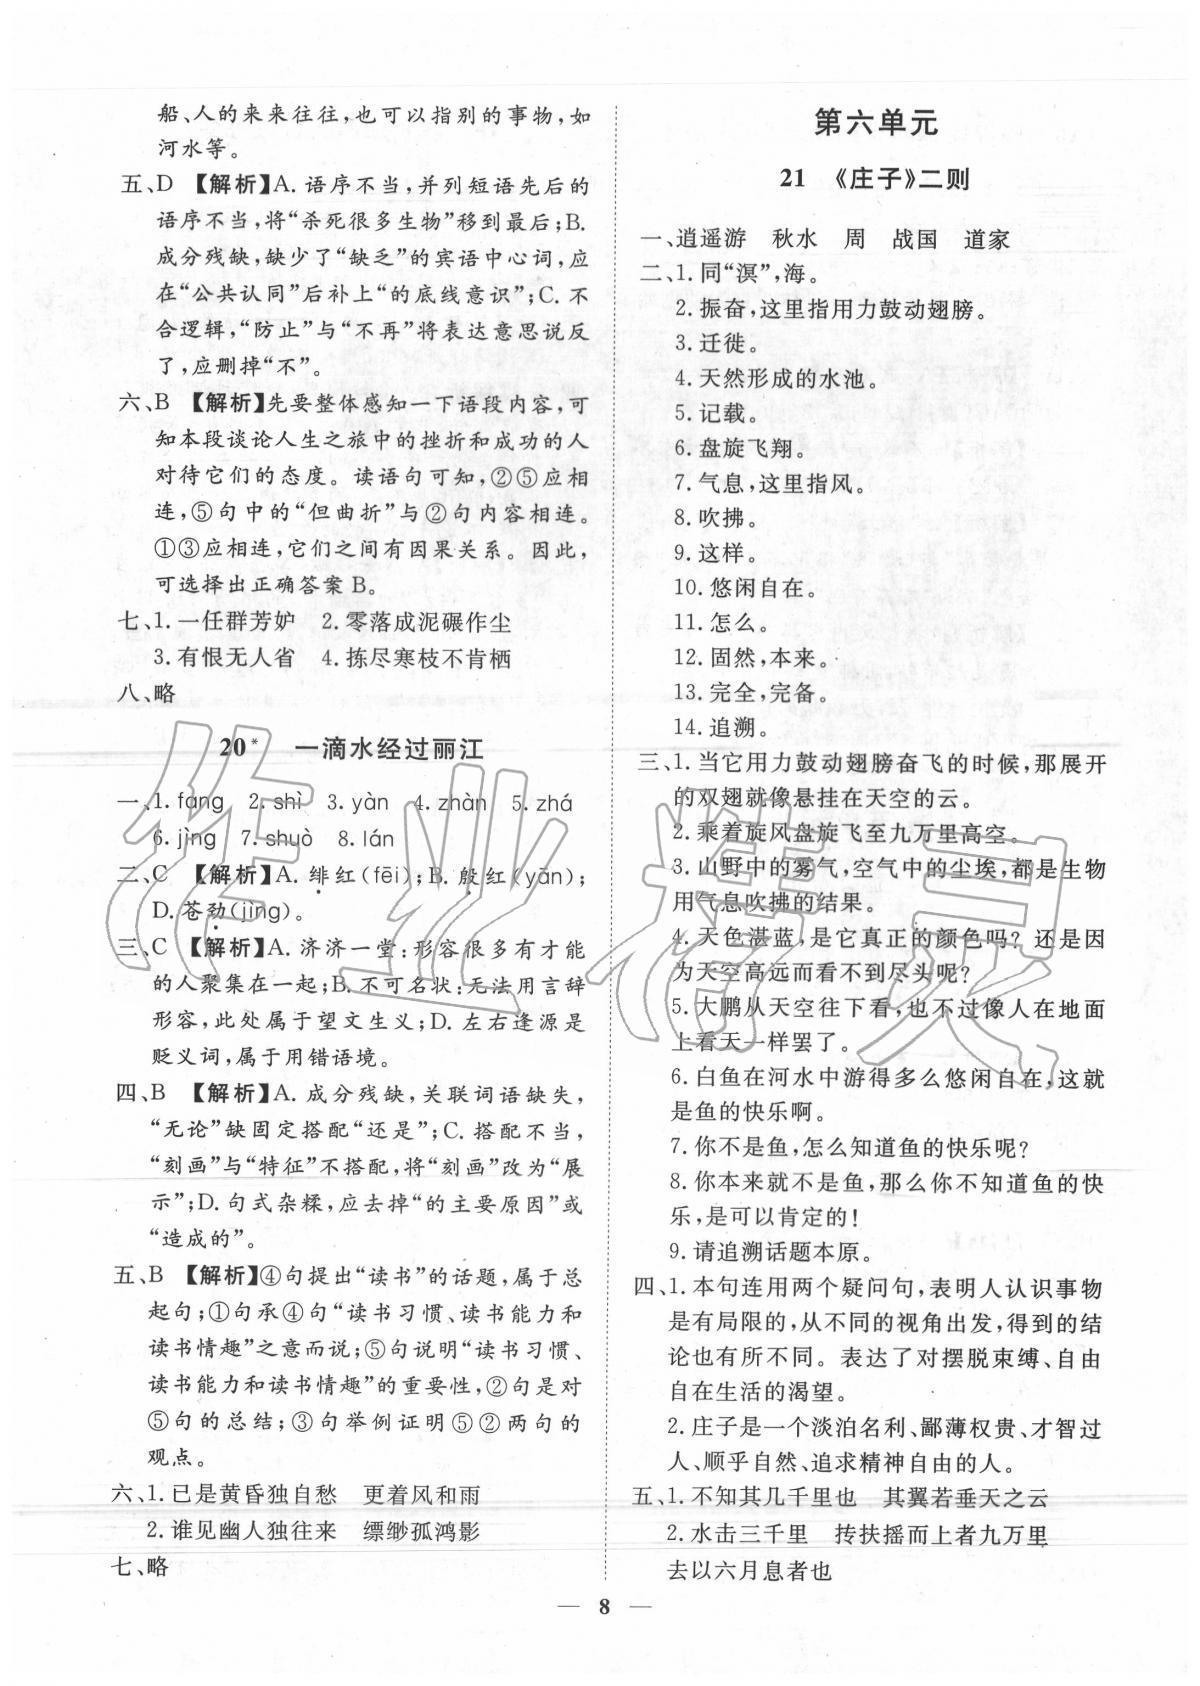 船、人的来来往往,也可以指别的事物,如
河水等。
五、D 【解析】A. 语序不当,并列短语先后的
语序不当,将“杀死很多生物”移到最后;B.
成分残缺,缺少了“缺乏”的宾语中心词,应
在“公共认同”后补上“的底线意识”;C. 不
合逻辑,“防止”与“不再”将表达意思说反
了,应删掉“不”。
六、B 【解析】先要整体感知一下语段内容,可
知本段谈论人生之旅中的挫折和成功的人
对待它们的态度。读语句可知,②⑤应相
连,⑤句中的“但曲折”与②句内容相连。
①③应相连,它们之间有因果关系。因此,
可选择出正确答案 B。
七、1. 一任群芳妒 2. 零落成泥碾作尘
3. 有恨无人省 4. 拣尽寒枝不肯栖
八、略
20* 一滴水经过丽江
一、1. fang 2. shì 3. yàn 4. zhàn 5. zhá
6. jìng 7. shuò 8. lán
二、C 【解析】A. 绯红(fēi);B. 殷红(yān);
D. 苍劲(jìng)。
三、C 【解析】A. 济济一堂:形容很多有才能
的人聚集在一起;B. 不可名状:无法用言辞
形容,此处属于望文生义;D. 左右逢源是
贬义词,属于用错语境。
四、B 【解析】A. 成分残缺,关联词语缺失,
“无论”缺固定搭配“还是”;C. 搭配不当,
“刻画”与“特征”不搭配,将“刻画”改为“展
示”;D. 句式杂糅,应去掉“的主要原因”或
“造成的”。
五、B 【解析】④句提出“读书”的话题,属于总
起句;①句承④句“读书习惯、读书能力和
读书情趣”之意而说;⑤句说明“读书习惯、
读书能力和读书情趣”的重要性,②句是对
⑤句的总结;③句举例证明⑤②两句的
观点。
六、1. 已是黄昏独自愁 更着风和雨
2. 谁见幽人独往来 缥缈孤鸿影
七、略
第六单元
21 《庄子》二则
一、逍遥游 秋水 周 战国 道家
二、1. 同“溟”,海。
2. 振奋,这里指用力鼓动翅膀。
3. 迁徙。
4. 天然形成的水池。
5. 记载。
6. 盘旋飞翔。
7. 气息,这里指风。
8. 吹拂。
9. 这样。
10. 悠闲自在。
11. 怎么。
12. 固然,本来。
13. 完全,完备。
14. 追溯。
三、1. 当它用力鼓动翅膀奋飞的时候,那展开
的双翅就像悬挂在天空的云。
2. 乘着旋风盘旋飞至九万里高空。
3. 山野中的雾气,空气中的尘埃,都是生物
用气息吹拂的结果。
4. 天色湛蓝,是它真正的颜色吗?还是因
为天空高远而看不到尽头呢?
5. 大鹏从天空往下看,也不过像人在地面
上看天一样罢了。
6. 白鱼在河水中游得多么悠闲自在,这就
是鱼的快乐啊。
7. 你不是鱼,怎么知道鱼的快乐呢?
8. 你本来就不是鱼,那么你不知道鱼的快
乐,是可以肯定的!
9. 请追溯话题本原。
四、1. 本句连用两个疑问句,表明人认识事物
是有局限的,从不同的视角出发,得到的结
论也有所不同。表达了对摆脱束缚、自由
自在生活的渴望。
2. 庄子是一个淡泊名利、鄙薄权贵、才智过
人、顺乎自然、追求精神自由的人。
五、1. 不知其几千里也 其翼若垂天之云
2. 水击三千里 抟扶摇而上者九万里
去以六月息者也
— 8 —
作业精灵